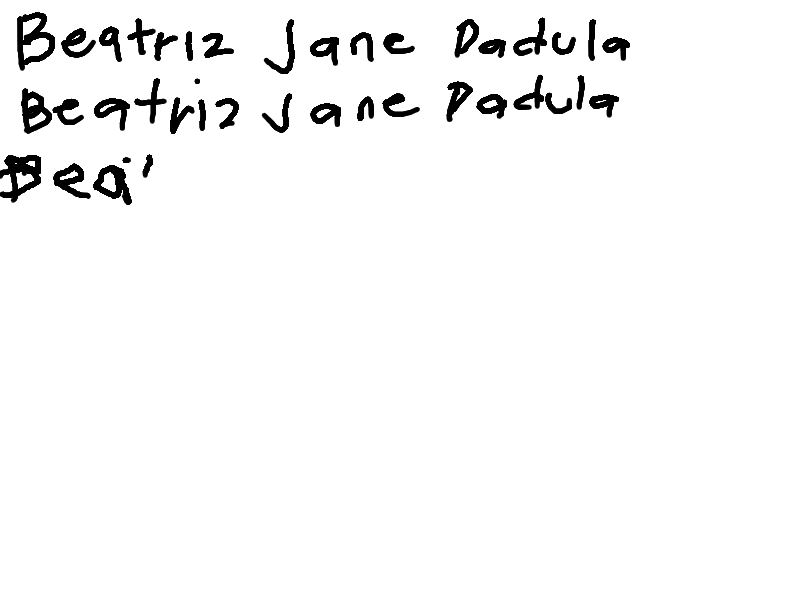 Beatriz Jane Dadula
Beatriz Jane Dadula
Bea